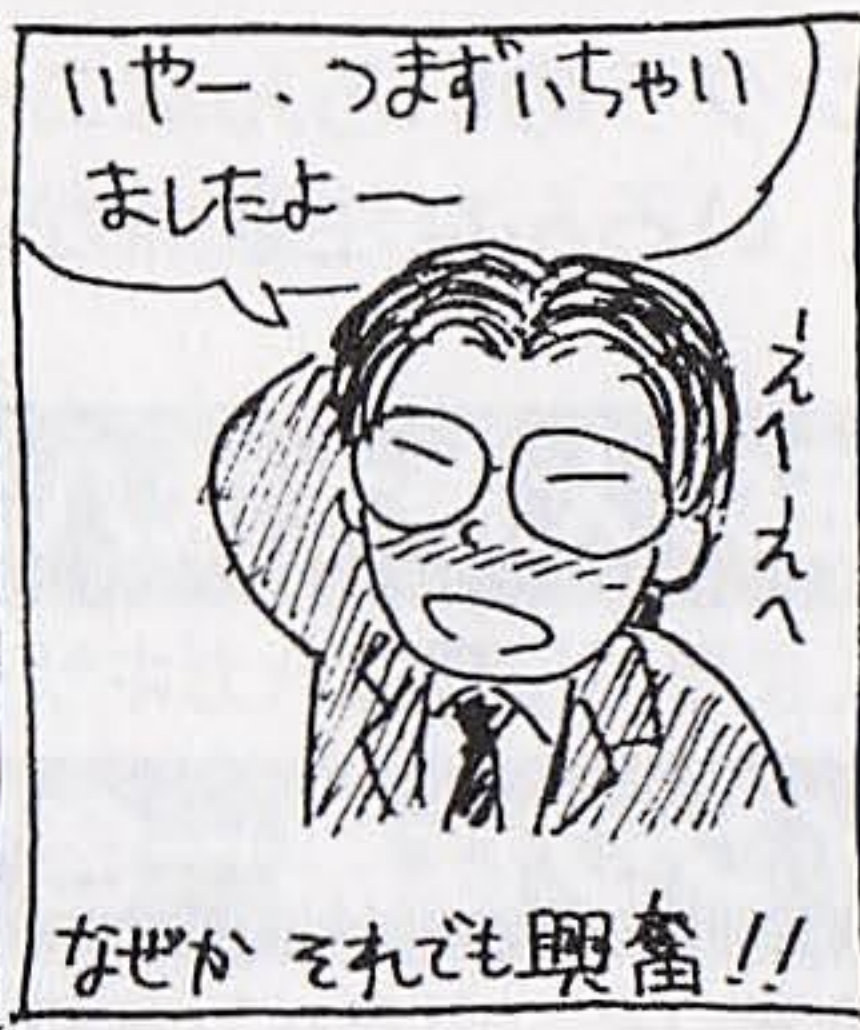 いやー、つまずいちゃい
ましたよ〜
えへへ
なぜか それでも興奮!!